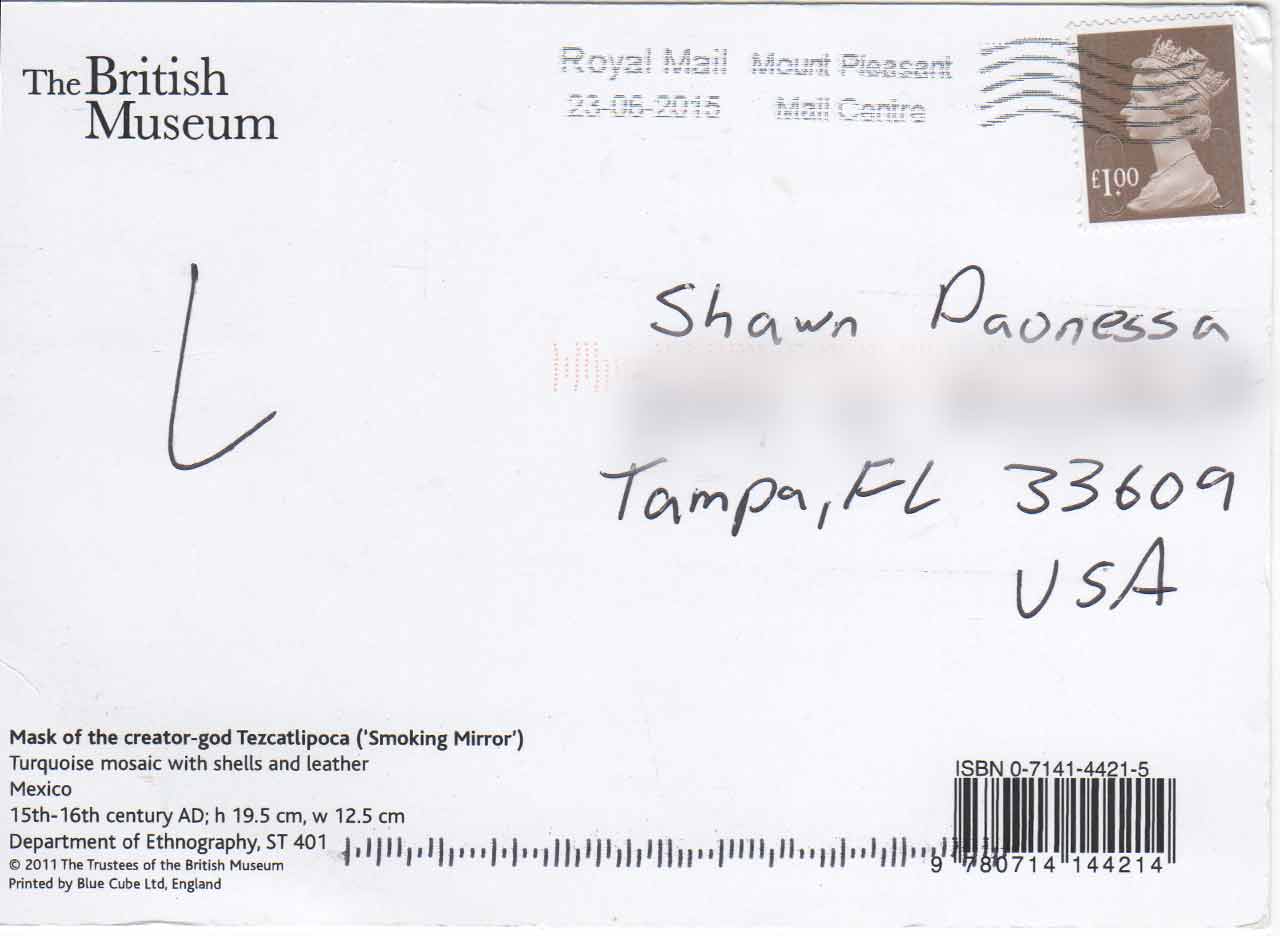 The British
Museum
Royal Mail Mount Pleasant
23-06-2015 Mail Centre
£1.00
L
Shawn Paonessa
Tampa, FL 33609
USA
Mask of the creator-god Tezcatlipoca ('Smoking Mirror')
Turquoise mosaic with shells and leather
Mexico
15th-16th century AD; h 19.5 cm, w 12.5 cm
Department of Ethnography, ST 401
© 2011 The Trustees of the British Museum
Printed by Blue Cube Ltd, England
ISBN 0-7141-4421-5
9 780714 144214